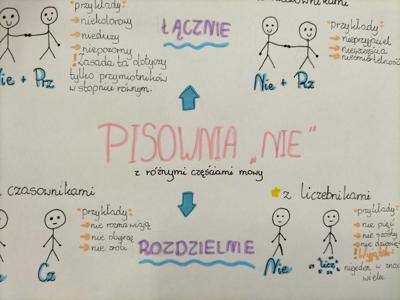 przykłady:
niekolorowy
nieduży
niepozorny
! Zasada ta dotyczy
tylko przymiotników
w stopniu równym.
Nie + Prz
ŁĄCZNIE
przykłady:
nieprzyjaciel
nieszczęście
Nie + Rz
PISOWNIA „NIE”
z różnymi częściami mowy
czasownikami
przykłady:
nie rozmawiają
nie obejrzę
nie zrobi
Cz
ROZDZIELNIE
z liczebnikami
przykłady:
nie pięć
Nie
licz.